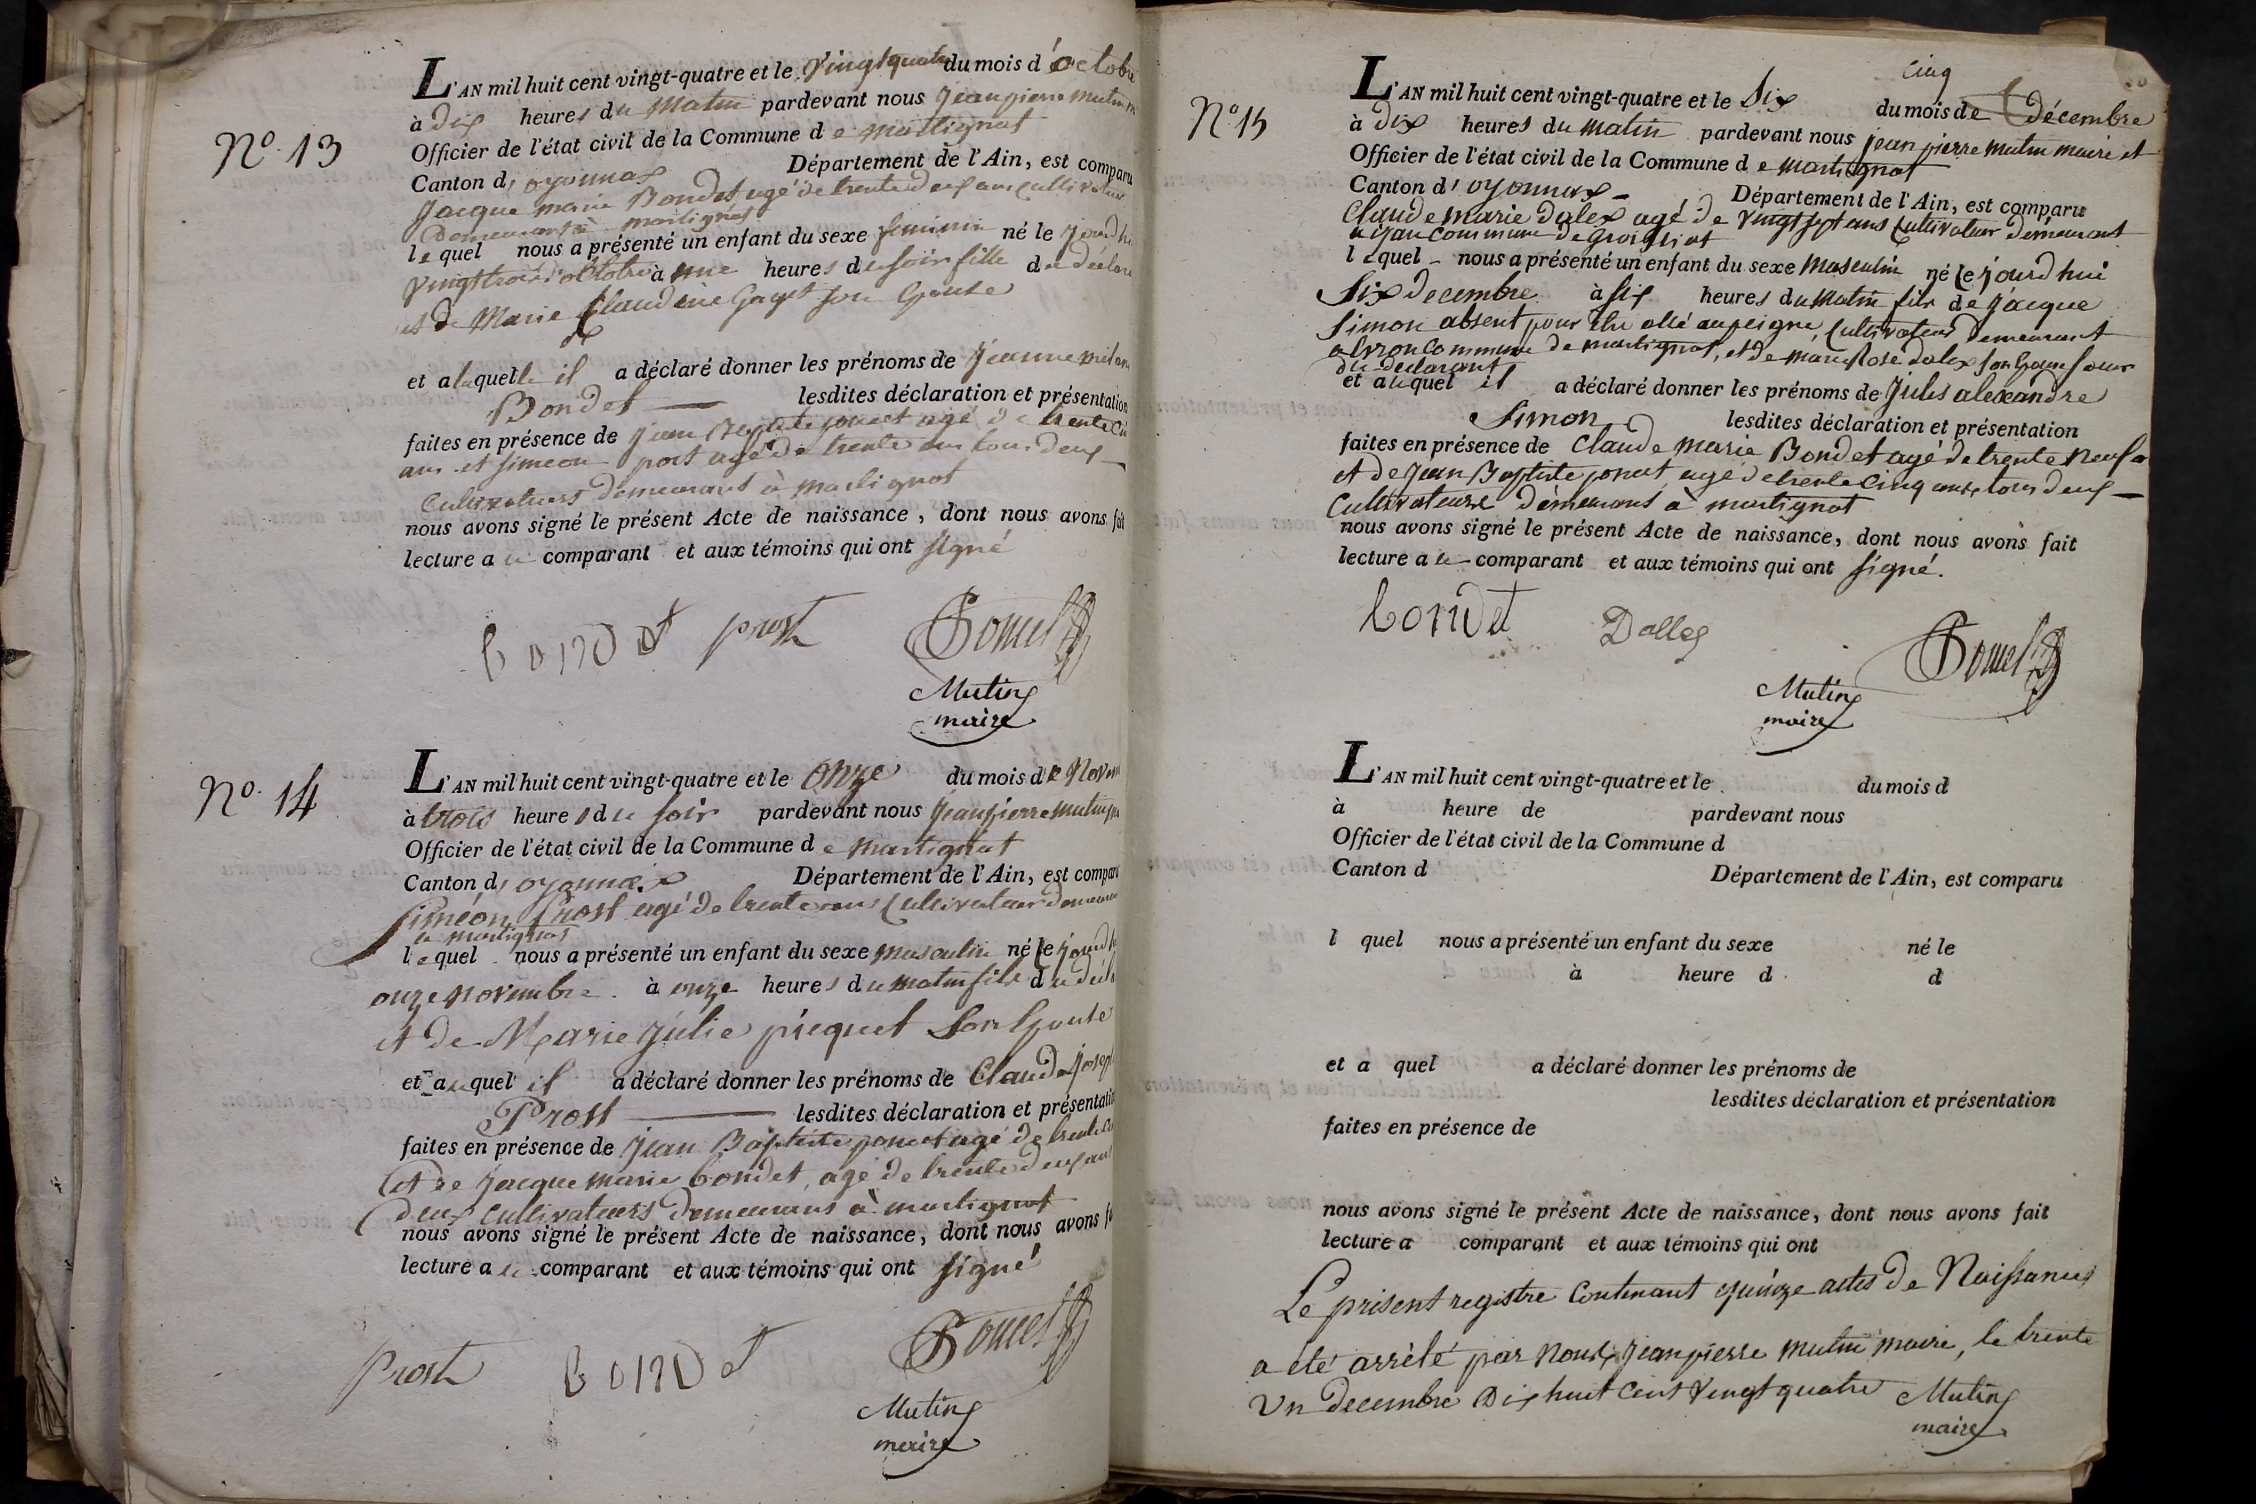 N.o 13
L'AN mil huit cent vingt-quatre et le vingtquatre du mois d'octobre
à dix heures du matin pardevant nous jeanpierre mutin
Officier de l'état civil de la Commune de martignat
Canton d'oyonnax Département de l'Ain, est comparu
jacque marie Bondet agé de trente deux ans cultivateur
demeurant à martignat
lequel nous a présenté un enfant du sexe feminin né le
vingttrois octobre à une heures du soir fille du
et de Marie Claudine Gayet son épouse
et alaquelle il a déclaré donner les prénoms de jeanne
Bondet lesdites déclaration et présentation
faites en présence de jean Baptiste poncet agé de trente
ans et simeon prost agé de trente ans tous deux
Cultivateurs demeurants à martignat
nous avons signé le présent Acte de naissance, dont nous avons fait
lecture au comparant et aux témoins qui ont signé
bondet prost Poncet
Mutin
maire
N.o 14
L'AN mil huit cent vingt-quatre et le onze du mois de Novem
à trois heures du soir pardevant nous jeanpierre mutin
Officier de l'état civil de la Commune de martignat
Canton d'oyonnax Département de l'Ain, est comparu
Siméon Prost agé de trente ans Cultivateur demeurant
a martignat
lequel nous a présenté un enfant du sexe masculin né le
onze novembre à onze heures du matin fils du
et de Marie julie picquet son épouse
et auquel il a déclaré donner les prénoms de Claude joseph
Prost lesdites déclaration et présentation
faites en présence de jean Baptiste poncet agé de trente
et de jacque marie bondet, agé de trente deux ans
deux cultivateurs demeurans à martignat
nous avons signé le présent Acte de naissance, dont nous avons
lecture au comparant et aux témoins qui ont signé
Prost bondet Poncet
Mutin
maire
N.o 15
cinq
L'AN mil huit cent vingt-quatre et le Six du mois de décembre
à dix heures du matin pardevant nous jean pierre mutin maire et
Officier de l'état civil de la Commune de martignat
Canton d'oyonnax Département de l'Ain, est comparu
Claude marie dalex agé de vingt sept ans Cultivateur demeurant
a commune de Groissiat
lequel nous a présenté un enfant du sexe masculin né le jourd'hui
Six decembre à six heures du matin fils de jacque
Simon absent pour être allé au peigne, Cultivateur demeurant
a commune de martignat, et de marie Rose dalex son épouse soeur
du declarant
et auquel il a déclaré donner les prénoms de jules alexandre
Simon lesdites déclaration et présentation
faites en présence de Claude marie Bondet agé de trente neuf a
et de jean Baptiste poncet, agé de trente cinq ans, tous deux
Cultivateurs demeurants à martignat
nous avons signé le présent Acte de naissance, dont nous avons fait
lecture au comparant et aux témoins qui ont signé.
bondet Dallex Poncet
Mutin
maire
L'AN mil huit cent vingt-quatre et le du mois d
à heure de pardevant nous
Officier de l'état civil de la Commune d
Canton d Département de l'Ain, est comparu
l quel nous a présenté un enfant du sexe né le
à heure d d
et a quel a déclaré donner les prénoms de
lesdites déclaration et présentation
faites en présence de
nous avons signé le présent Acte de naissance, dont nous avons fait
lecture a comparant et aux témoins qui ont
Le présent registre contenant quinze actes de Naissances
a été arrêté par nous, jeanpierre mutin maire, le trente
un decembre Dix huit cent vingt quatre Mutin
maire